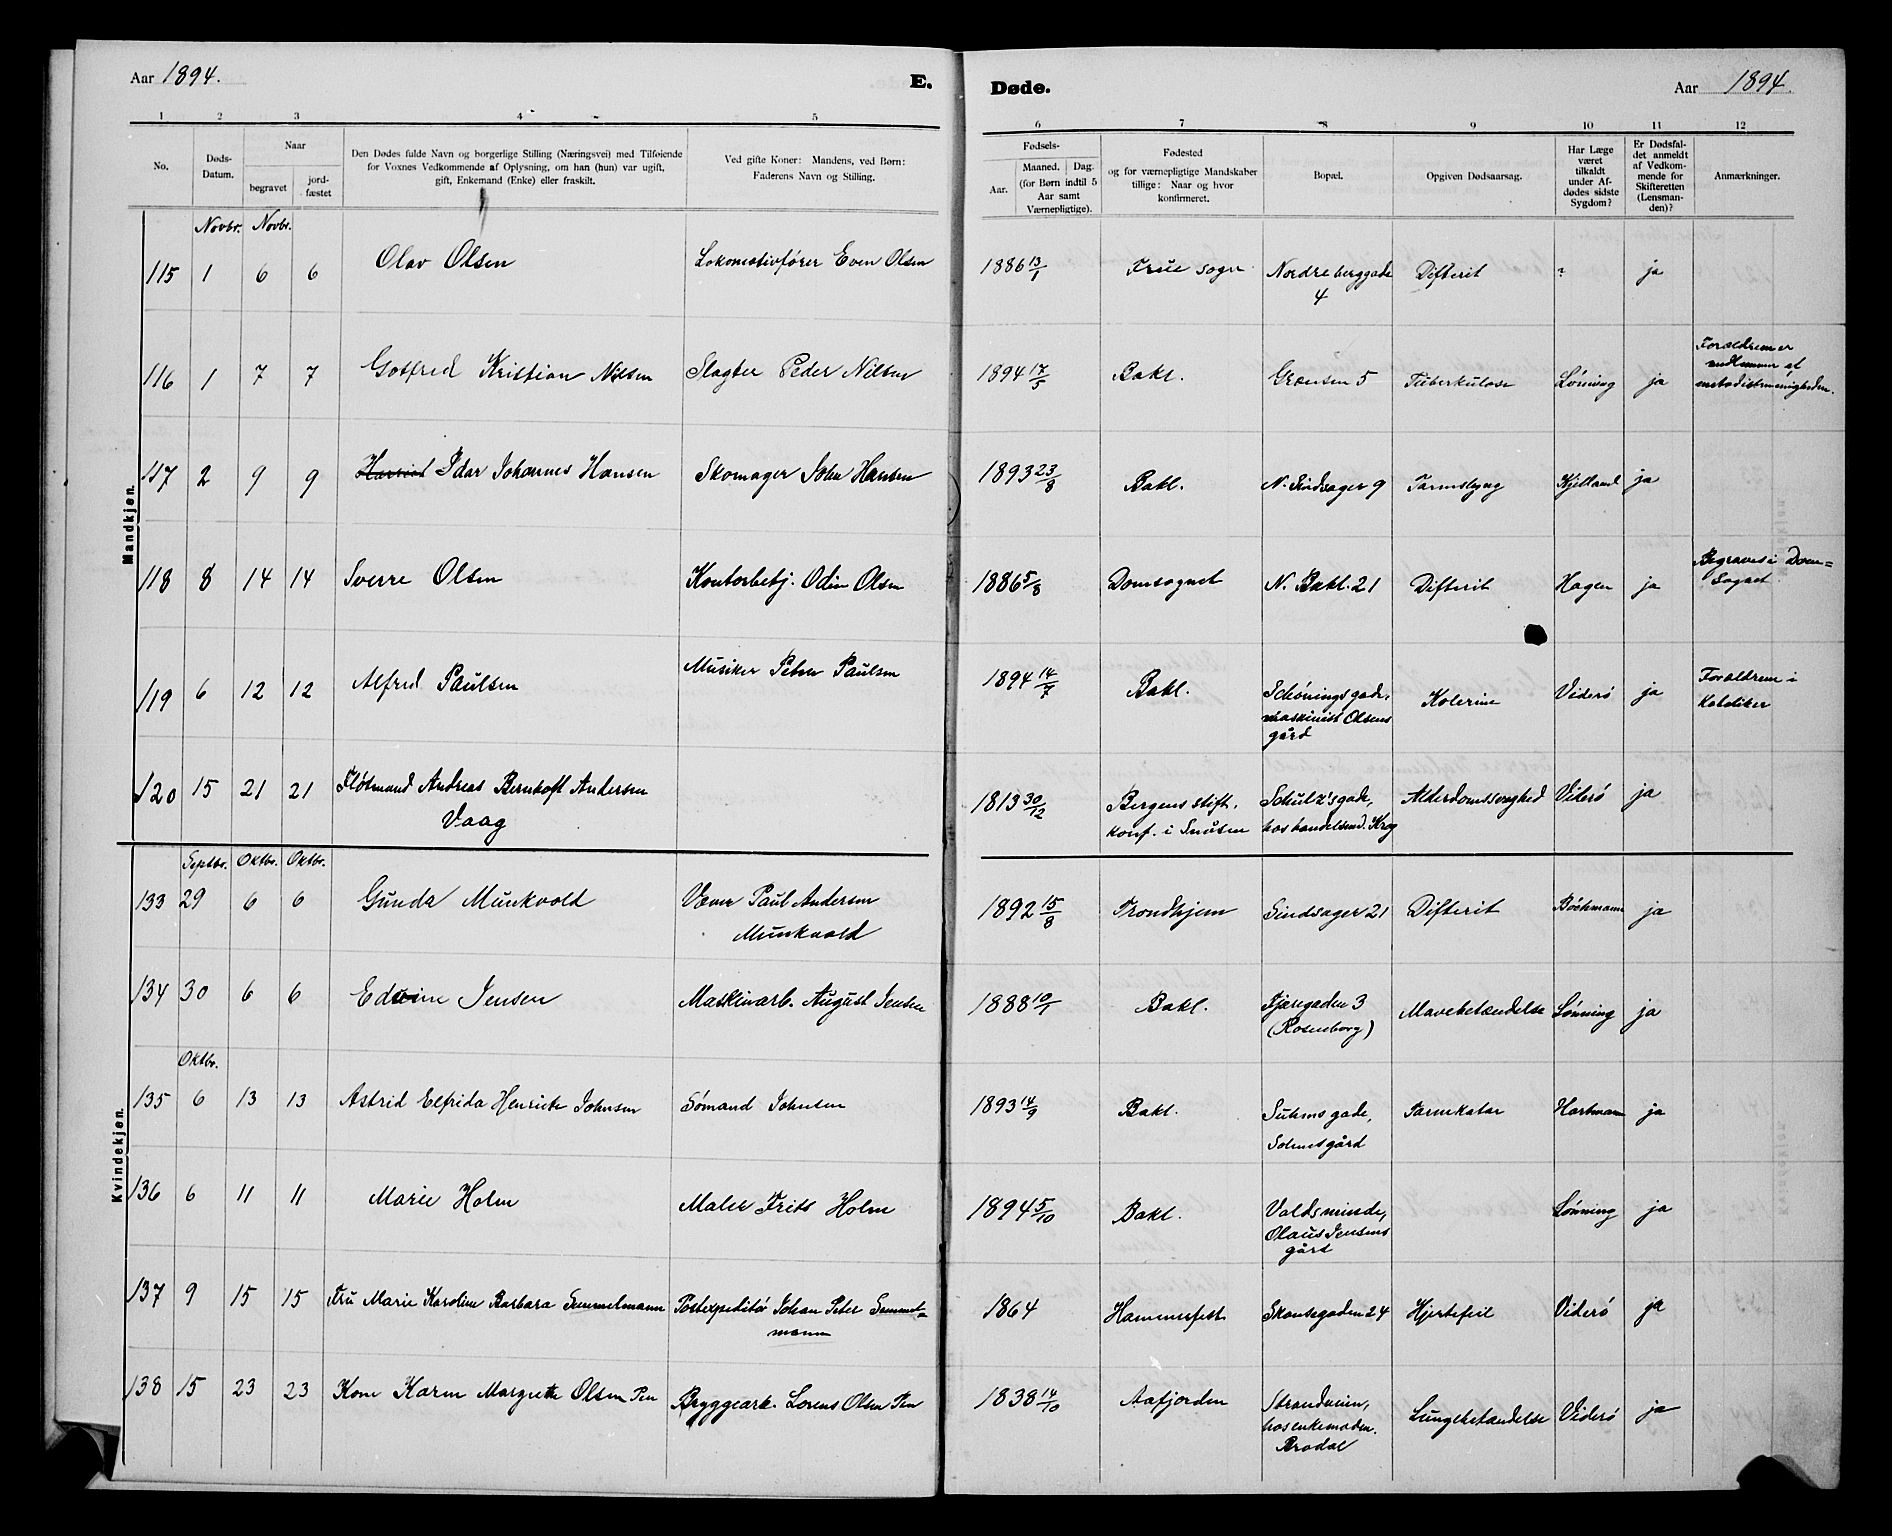 Aar 1894.
E.
Døde.
Aar 1894.
1 2 3 4 5 6 7 8 9 10 11 12
No.
Døds-
Datum.
Naar
begravet
jord-
fæstet
Den Dødes fulde Navn og borgerlige Stilling (Næringsvei) med Tilføiende
for Voxnes Vedkommende af Oplysning, om han (hun) var ugift,
gift, Enkemand (Enke) eller fraskilt.
Ved gifte Koner: Mandens, ved Børn:
Faderens Navn og Stilling.
Fødsels-
Aar.
Maaned. Dag.
(for Børn indtil 5
Aar samt
Værnepligtige).
Fødested
og for værnepligtige Mandskaber
tillige: Naar og hvor
konfirmeret.
Bopæl.
Opgiven Dødsaarsag.
Har Læge
været
tilkaldt
under Af-
dødes sidste
Sygdom?
Er Dødsfal-
det anmeldt
af Vedkom-
mende for
Skifteretten
(Lensman-
den)?
Anmærkninger.
Mandkjøn.
Novbr. Novbr.
115 1 6 6 Olav Olsen Lokomotivfører Even Olsen 1886 13/1 Frue sogn Nordre berggade Difterit ? ja
4
116 1 7 7 Gotfred Kristian Nilsen Slagter Peder Nilsen 1894 17/5 Bakl. Grænsen 5 Tuberkulose Lønning ja Forældrene er
medlemmer af
metodistmenigheden.
117 2 9 9 Idar Johannes Hansen Skomager John Hansen 1893 23/8 Bakl. N. Sindsager 9 Tarmslyng Kjelland ja
118 8 14 14 Sverre Olsen Kontorbetj. Odin Olsen 1886 5/8 Domsognet N. Bakl. 21 Difterit Hagen ja Begraves i Dom=
Sognet.
119 6 12 12 Alfred Paulsen Musiker Peter Paulsen 1894 14/7 Bakl. Schønings gade, Kolerine Viderö ja Forældrene i
maskinist Olsens Katoliker
gård
120 15 21 21 Fløtmand Andreas Bernhoft Andersen 1813 30/12 Bergens stift. Schulz's gade, Alderdomssvaghed Viderö ja
Vaag konf. i hos handelsmd. Krog
Kvindekjøn.
Septbr. Oktbr. Oktbr.
133 29 6 6 Gunda Munkvold Væver Paul Andersen 1892 15/8 Trondhjem Sindsager 21 Difterit Bøckmann ja
Munkvold
134 30 6 6 Edvine Jensen Maskinarb. August Jensen 1888 10/1 Bakl. Tjæregaden 3 Mavebetændelse Lønning ja
(Rosenborg)
Oktbr.
135 6 13 13 Astrid Elfrida Henriette Johnsen Sømand Johnsen 1893 14/9 Bakl. Suhms gade, Tarmkatar Hartmann ja
Solemsgård
136 6 11 11 Marie Holm Maler Frits Holm 1894 5/10 Bakl. Voldsminde, Lønning ja
Olaus Jensens
gård
137 9 15 15 Fru Marie Karoline Barbara Semmelmann Postexpeditör Johan Peter Semmel= 1864 Hammerfest Skansegaden 24 Hjertefeil Viderö ja
mann
138 15 23 23 Kone Karen Margrethe Olsen Pen Bryggearb. Lorens Olsen Pen 1838 14/10 Aafjorden Strandveien, Lungebetændelse Viderö ja
hos enkemaden.
Brodal